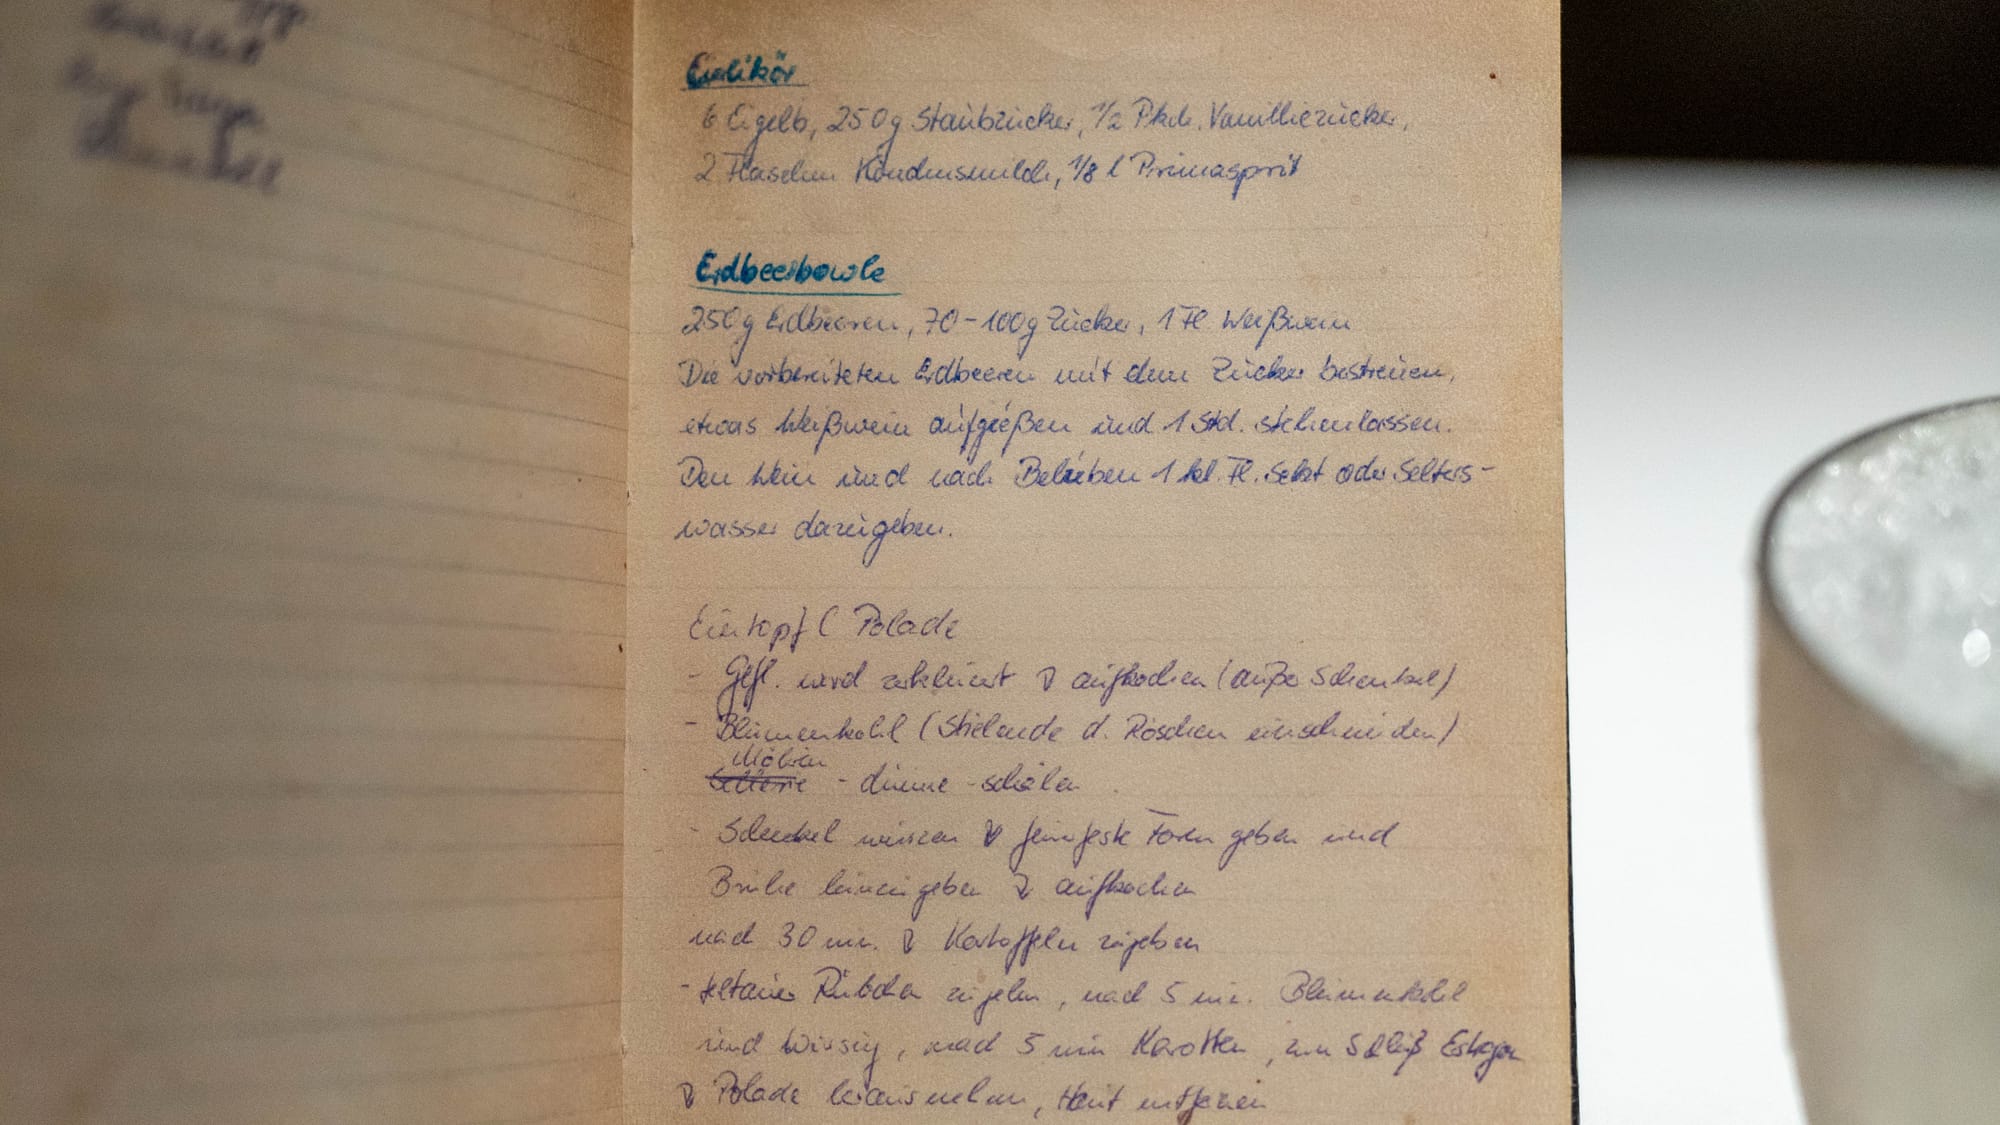 Eierlikör
6 Eigelb, 250g Staubzucker, 1/2 Pkch. Vanilliezucker,
2 Flaschen Kondensmilch, 1/8 l Primasprit
Erdbeerbowle
250g Erdbeeren, 70-100g Zucker, 1 Fl. Weißwein
Die vorbereiteten Erdbeeren mit dem Zucker bestreuen,
etwas Weißwein aufgießen und 1 Std. stehenlassen.
Den Wein und nach Belieben 1 kl. Fl. Sekt oder Selters-
wasser dazugeben.
Eintopf ( Polade
- Gefl. wird zerkleinert aufkochen (außer Schenkel)
- Blumenkohl (Stielende d. Röschen einschneiden)
Möhren
Sellerie - dünne - schälen
- Schenkel würzen feuerfeste Form geben und
Brühe hineingeben aufkochen
nach 30 min. Kartoffeln zugeben
- teltower Rübchen zugeben, nach 5 min. Blumenkohl
und Wirsing, nach 5 min Karotten, zum Schluß Estragon
Polade herausnehmen, Haut entfernen